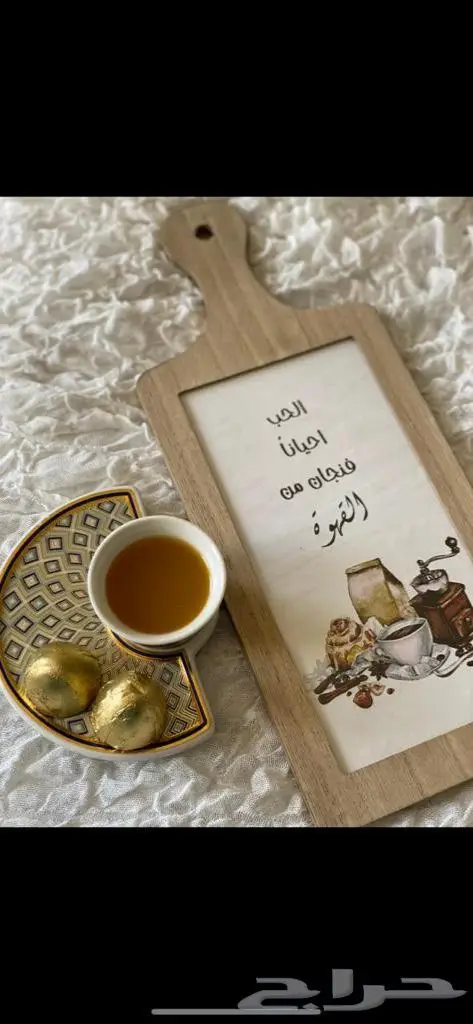 الحب
احياناً
فنجان من
القهوة
حراج